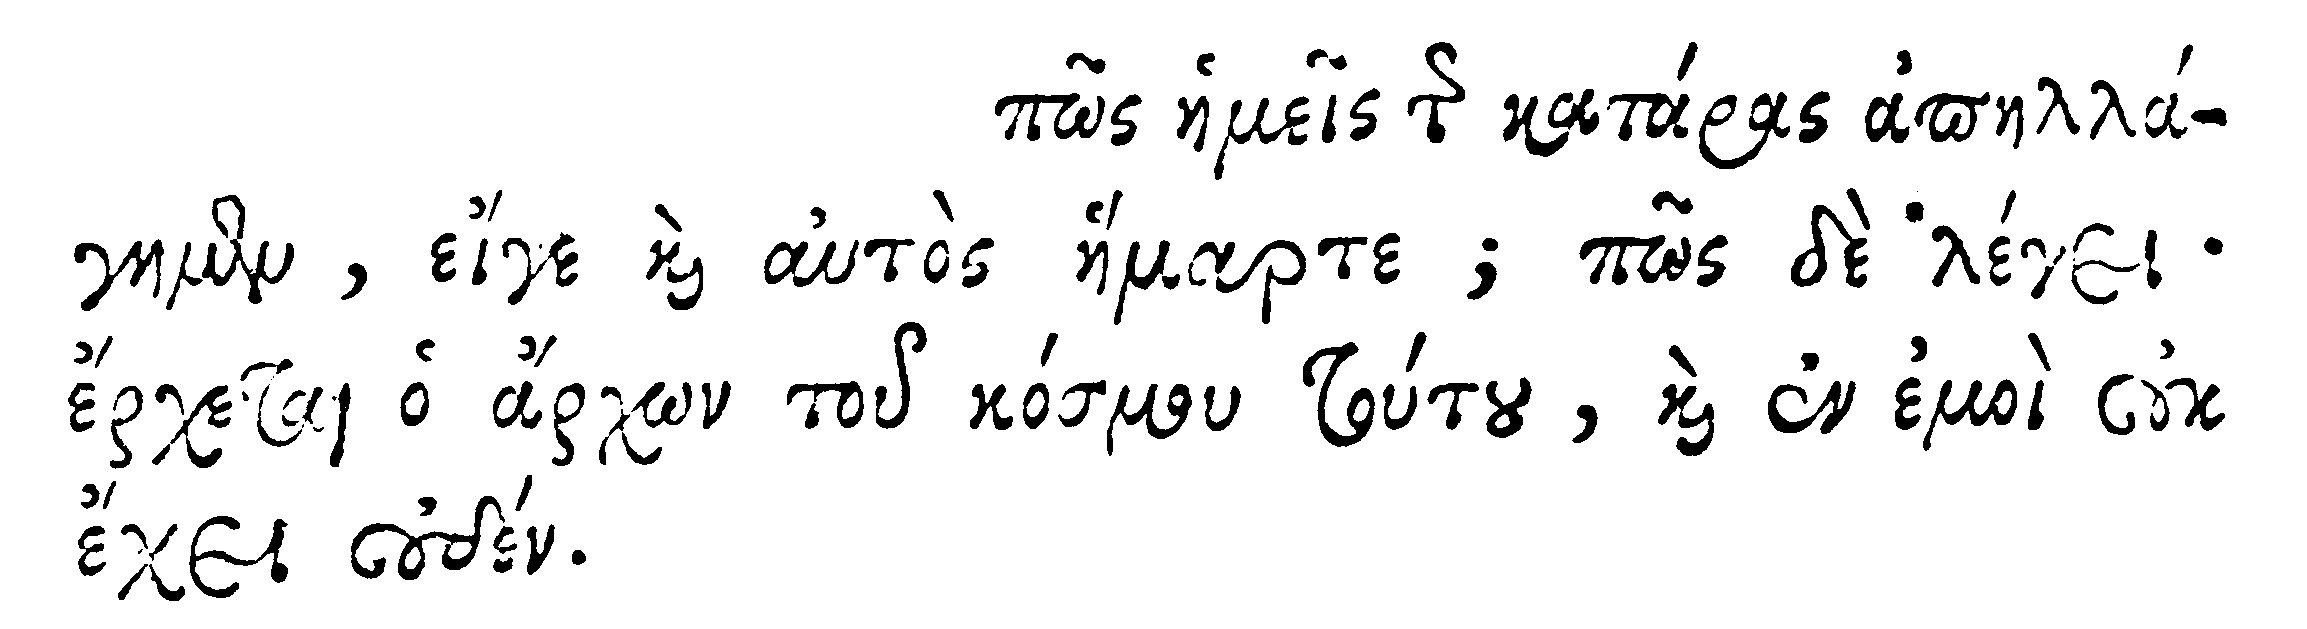 πῶς ἡμεῖς τ̃ κατάρας ἀπηλλά-
γημῦμ, εἴγε κὶ αὐτὸς ἥμαρτε; πῶς δὲ λέγει·
ἔρχεται ὁ ἄρχων τοῦ κόσμου τούτου, κὶ ἐν ἐμοὶ οὐκ
ἔχει οὐδέν.